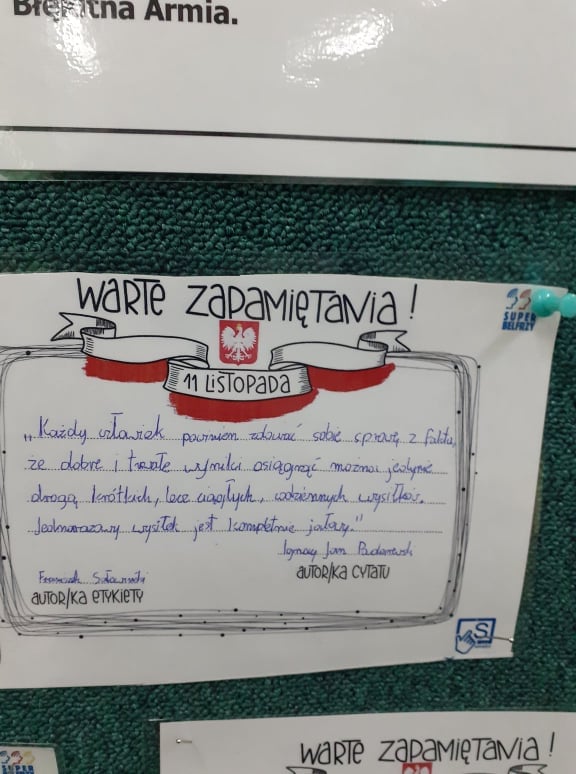 Błękitna Armia.
WARTE ZAPAMIĘTANIA!
SUPER
BELFRZY
11 LISTOPADA
„Każdy człowiek powinien zdawać sobie sprawę z faktu,
że dobre i trwałe wyniki osiągnąć można jedynie
drogą krótkich, lecz ciągłych, codziennych wysiłków.
Jednorazowy wysiłek jest kompletnie jałowy."
Ignacy Jan Paderewski
AUTOR/KA CYTATU
Franciszek
AUTOR/KA ETYKIETY
S
WARTE ZAPAMIĘTANIA!
SUPER